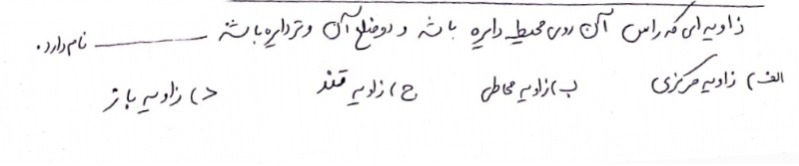 زاویه‌ای که راس آن روی محیط دایره باشد و دو ضلع آن وتر دایره باشد ــــــــــــ نام دارد.
الف) زاویه مرکزی ب) زاویه محاطی ج) زاویه تند د) زاویه باز